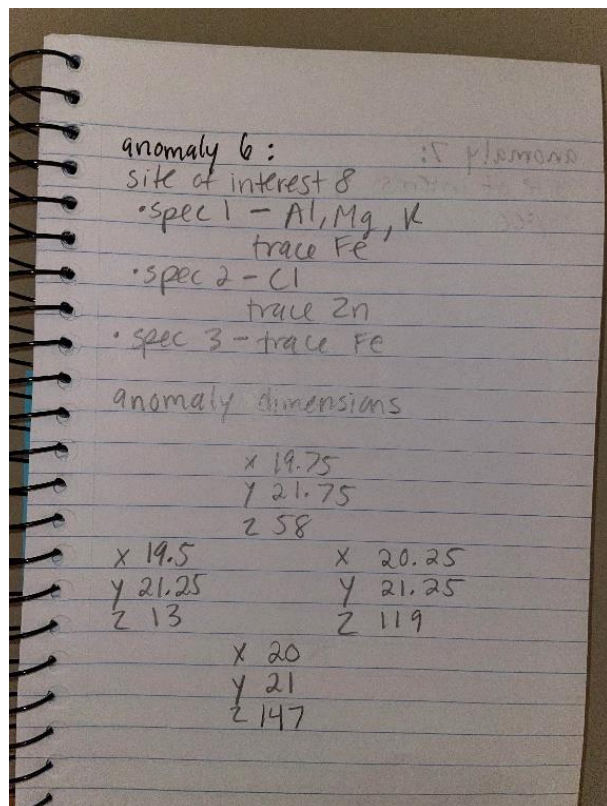 anomaly 6:
site of interest 8
• spec 1 - Al, Mg, K
trace Fe
• spec 2 - Cl
trace Zn
• spec 3 - trace Fe
anomaly dimensions
x 19.75
y 21.75
z 58
x 19.5
y 21.25
z 13
x 20.25
y 21.25
z 119
x 20
y 21
z 147
anomaly 7: